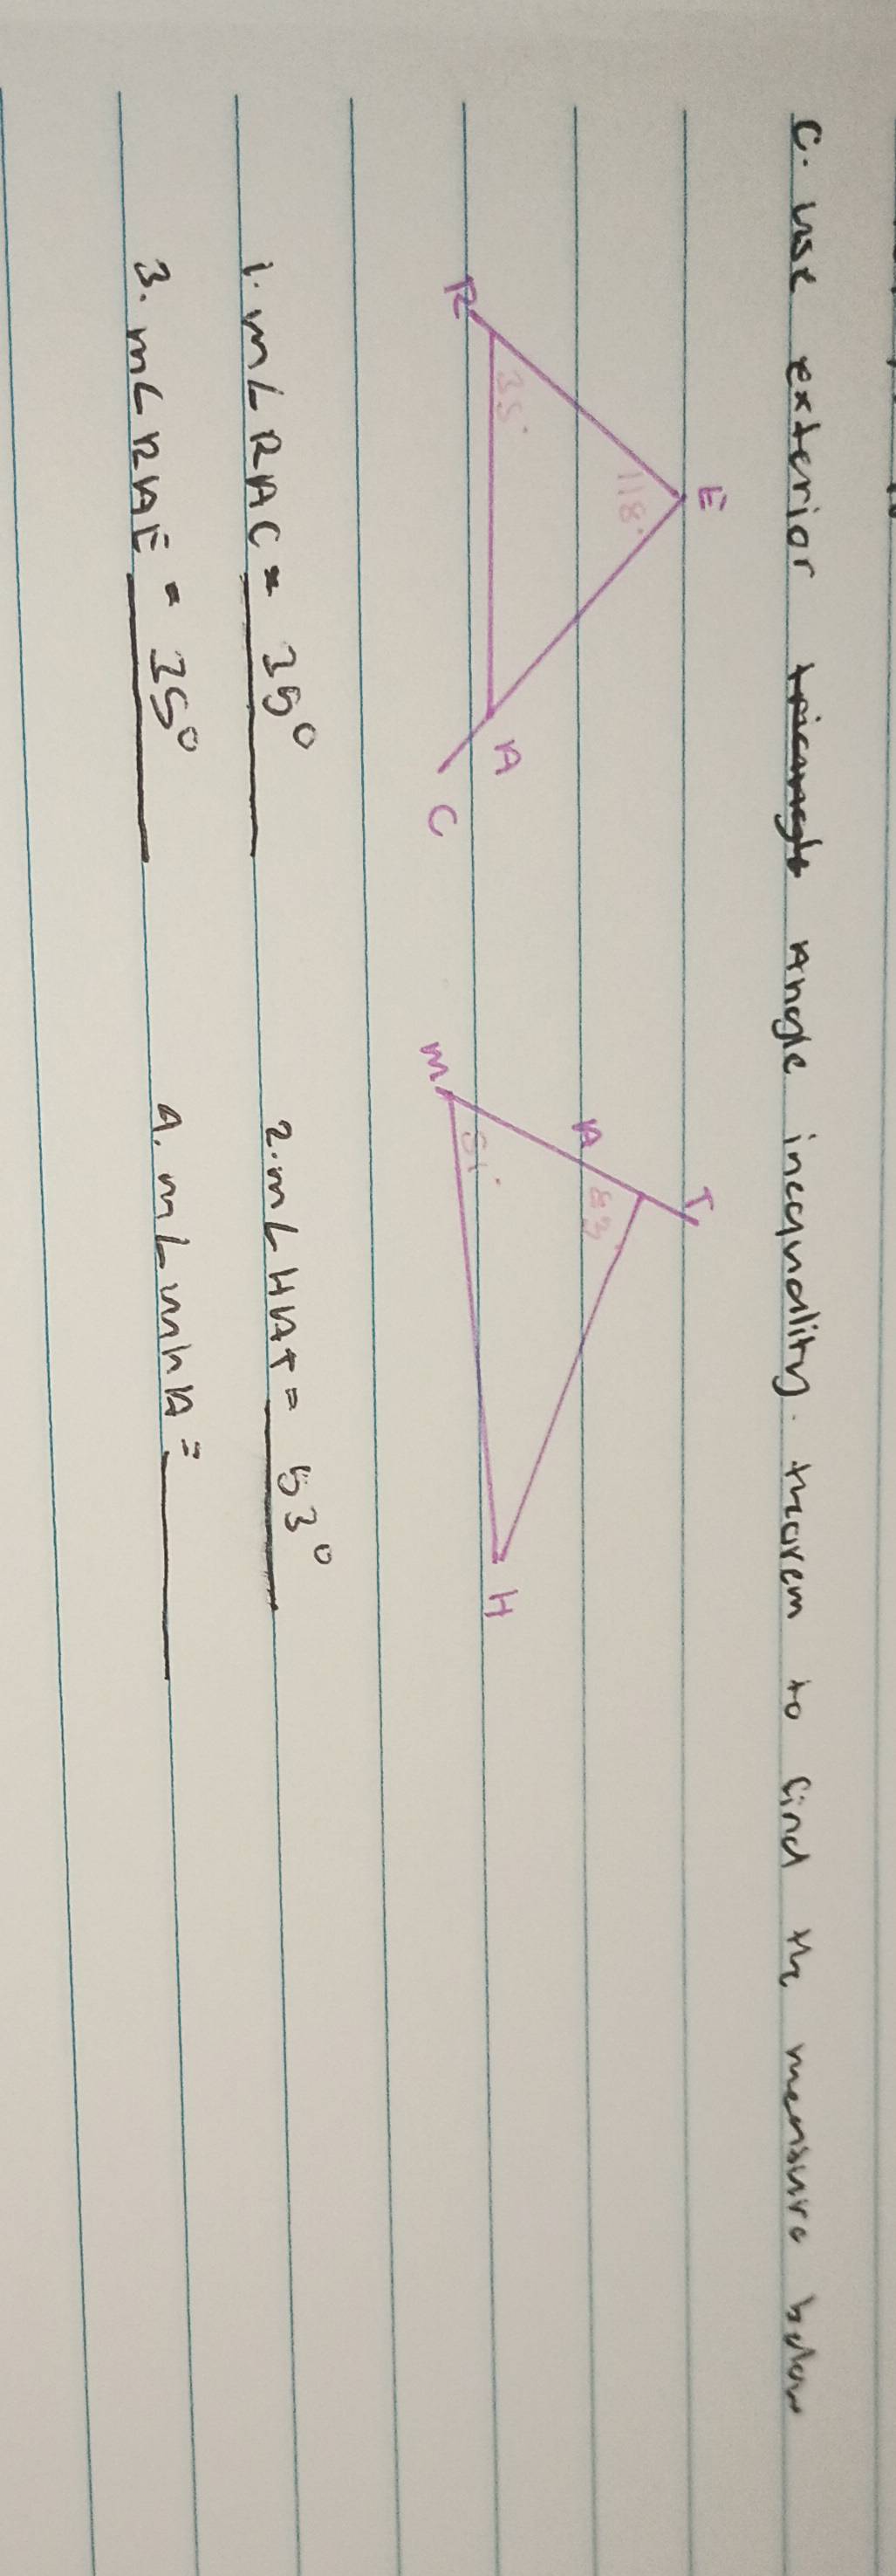 C. use exterior Angle inequality. theorem to find the measure below
E
118°
R 35° A
C
T
A 83°
M 51°
H
1. m∠RAC = 35°
2. m∠HAT = 53°
3. m∠RAE = 35°
4. m∠MHA =